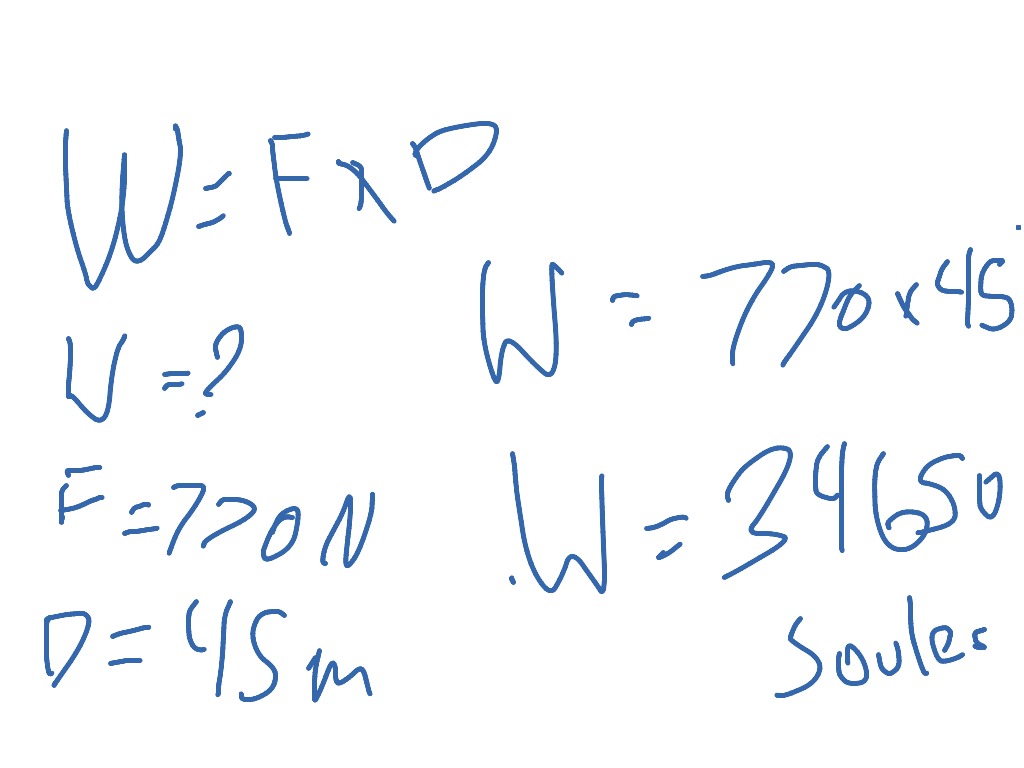 W = F x D
W = ?
F = 770N
D = 45m
W = 770 x 45
W = 34650
Joules